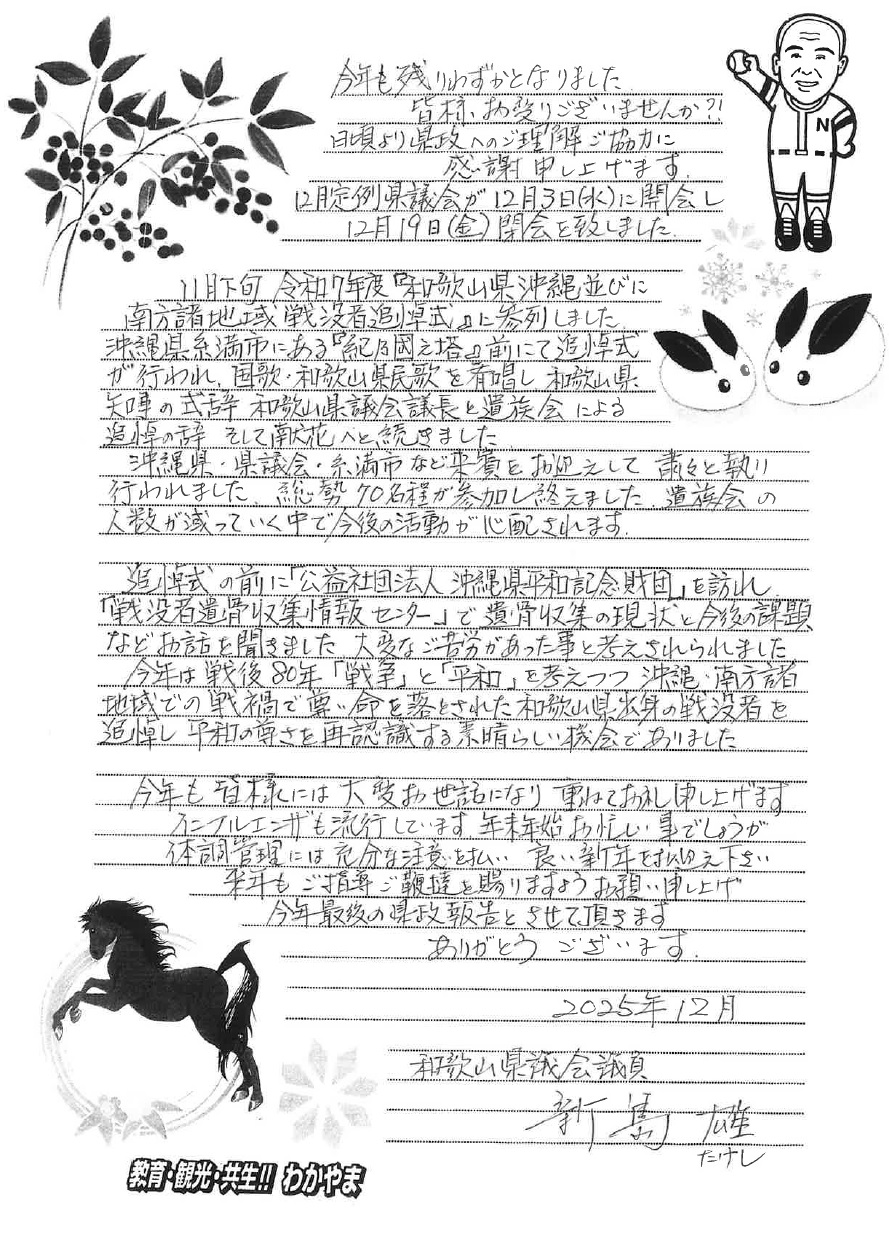 今年も残りわずかとなりました.
皆様、お変りございませんか?!
日頃より県政へのご理解ご協力に
感謝申し上げます.
12月定例県議会が12月3日(水)に開会し
12月19日(金)閉会を致しました.
N
11月下旬 令和7年度『和歌山県沖縄並びに
南方諸地域戦没者追悼式』に参列しました.
沖縄県糸満市にある『紀乃國之塔』前にて追悼式
が行われ、国歌・和歌山県民歌を斉唱し 和歌山県
知事の式辞 和歌山県議会議長と遺族会による
追悼の辞 そして献花へと続きました
沖縄県・県議会・糸満市など来賓をお迎えして 粛々と執り
行われました. 総勢70名程が参加し終えました. 遺族会の
人数が減っていく中で今後の活動が心配されます.
追悼式の前に「公益社団法人 沖縄県平和記念財団」を訪れ
「戦没者遺骨収集情報センター」で遺骨収集の現状と今後の課題
などお話を聞きました 大変なご苦労があった事と考えされられました
今年は戦後80年「戦争」と「平和」を考えつつ 沖縄・南方諸
地域での戦禍で尊い命を落とされた和歌山県出身の戦没者を
追悼し 平和の尊さを再認識する素晴らしい機会でありました
今年も皆様には大変お世話になり 重ねてお礼申し上げます
インフルエンザも流行しています 年末年始お忙しい事でしょうが
体調管理には充分な注意を払い 良い新年をお迎え下さい
来年もご指導ご鞭撻を賜りますようお願い申し上げ
今年最後の県政報告とさせて頂きます
ありがとう ございます.
2025年12月
和歌山県議会議員
新島 雄
たけし
教育・観光・共生!! わかやま